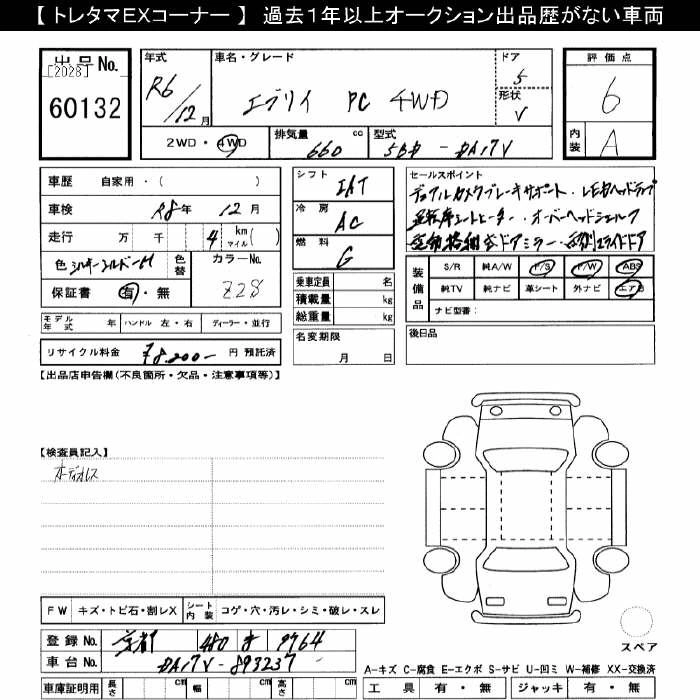 【 トレタマEXコーナー 】 過去1年以上オークション出品歴がない車両
出品 No.
[2028]
60132
年式
R6/12月
車名・グレード
エブリイ PC 4WD
ドア
5
形状
V
評価点
6
内装
A
2WD・4WD
排気量 660 cc
型式 5BD - DA17V
車歴 自家用・( )
車検 R8年 12月
走行 万 千 4 km マイル ( )
色 シルキーシルバーM
色替
カラーNo.
Z2S
保証書 有・無
モデル年式 年
ハンドル 左・右
ディーラー・並行
リサイクル料金 78,200- 円 預託済
シフト IAT
冷房 AC
燃料 G
乗車定員 名
積載量 kg
総重量 kg
名変期限
月 日
セールスポイント
デュアルカメラブレーキサポート・LEDヘッドランプ
運転席シートヒーター・オーバーヘッドシェルフ
ドアミラー・スライドドア
装備品
S/R 純A/W P/S P/W ABS
純TV 純ナビ 革シート 外ナビ エアB
ナビ型番:
後日品
【出品店申告欄(不良箇所・欠品・注意事項等)】
【検査員記入】
オーディオレス
FW キズ・トビ石・割レX
シート内装 コゲ・穴・汚レ・シミ・破レ・スレ
登録 No. 京都 480 き 9764
車台 No. DA17V - 893237
車庫証明用 長さ cm 幅 cm 高さ cm
スペア
A-キズ C-腐食 E-エクボ S-サビ U-凹ミ W-補修 XX-交換済
工具 有・無 ジャッキ 有・無